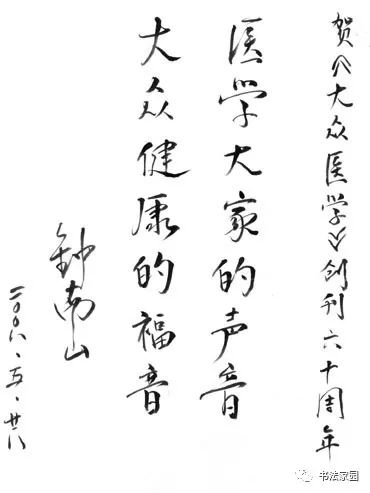 贺《大众医学》创刊六十周年
医学大家的声音
大众健康的福音
钟南山
二〇〇八、五、廿八
书法家园